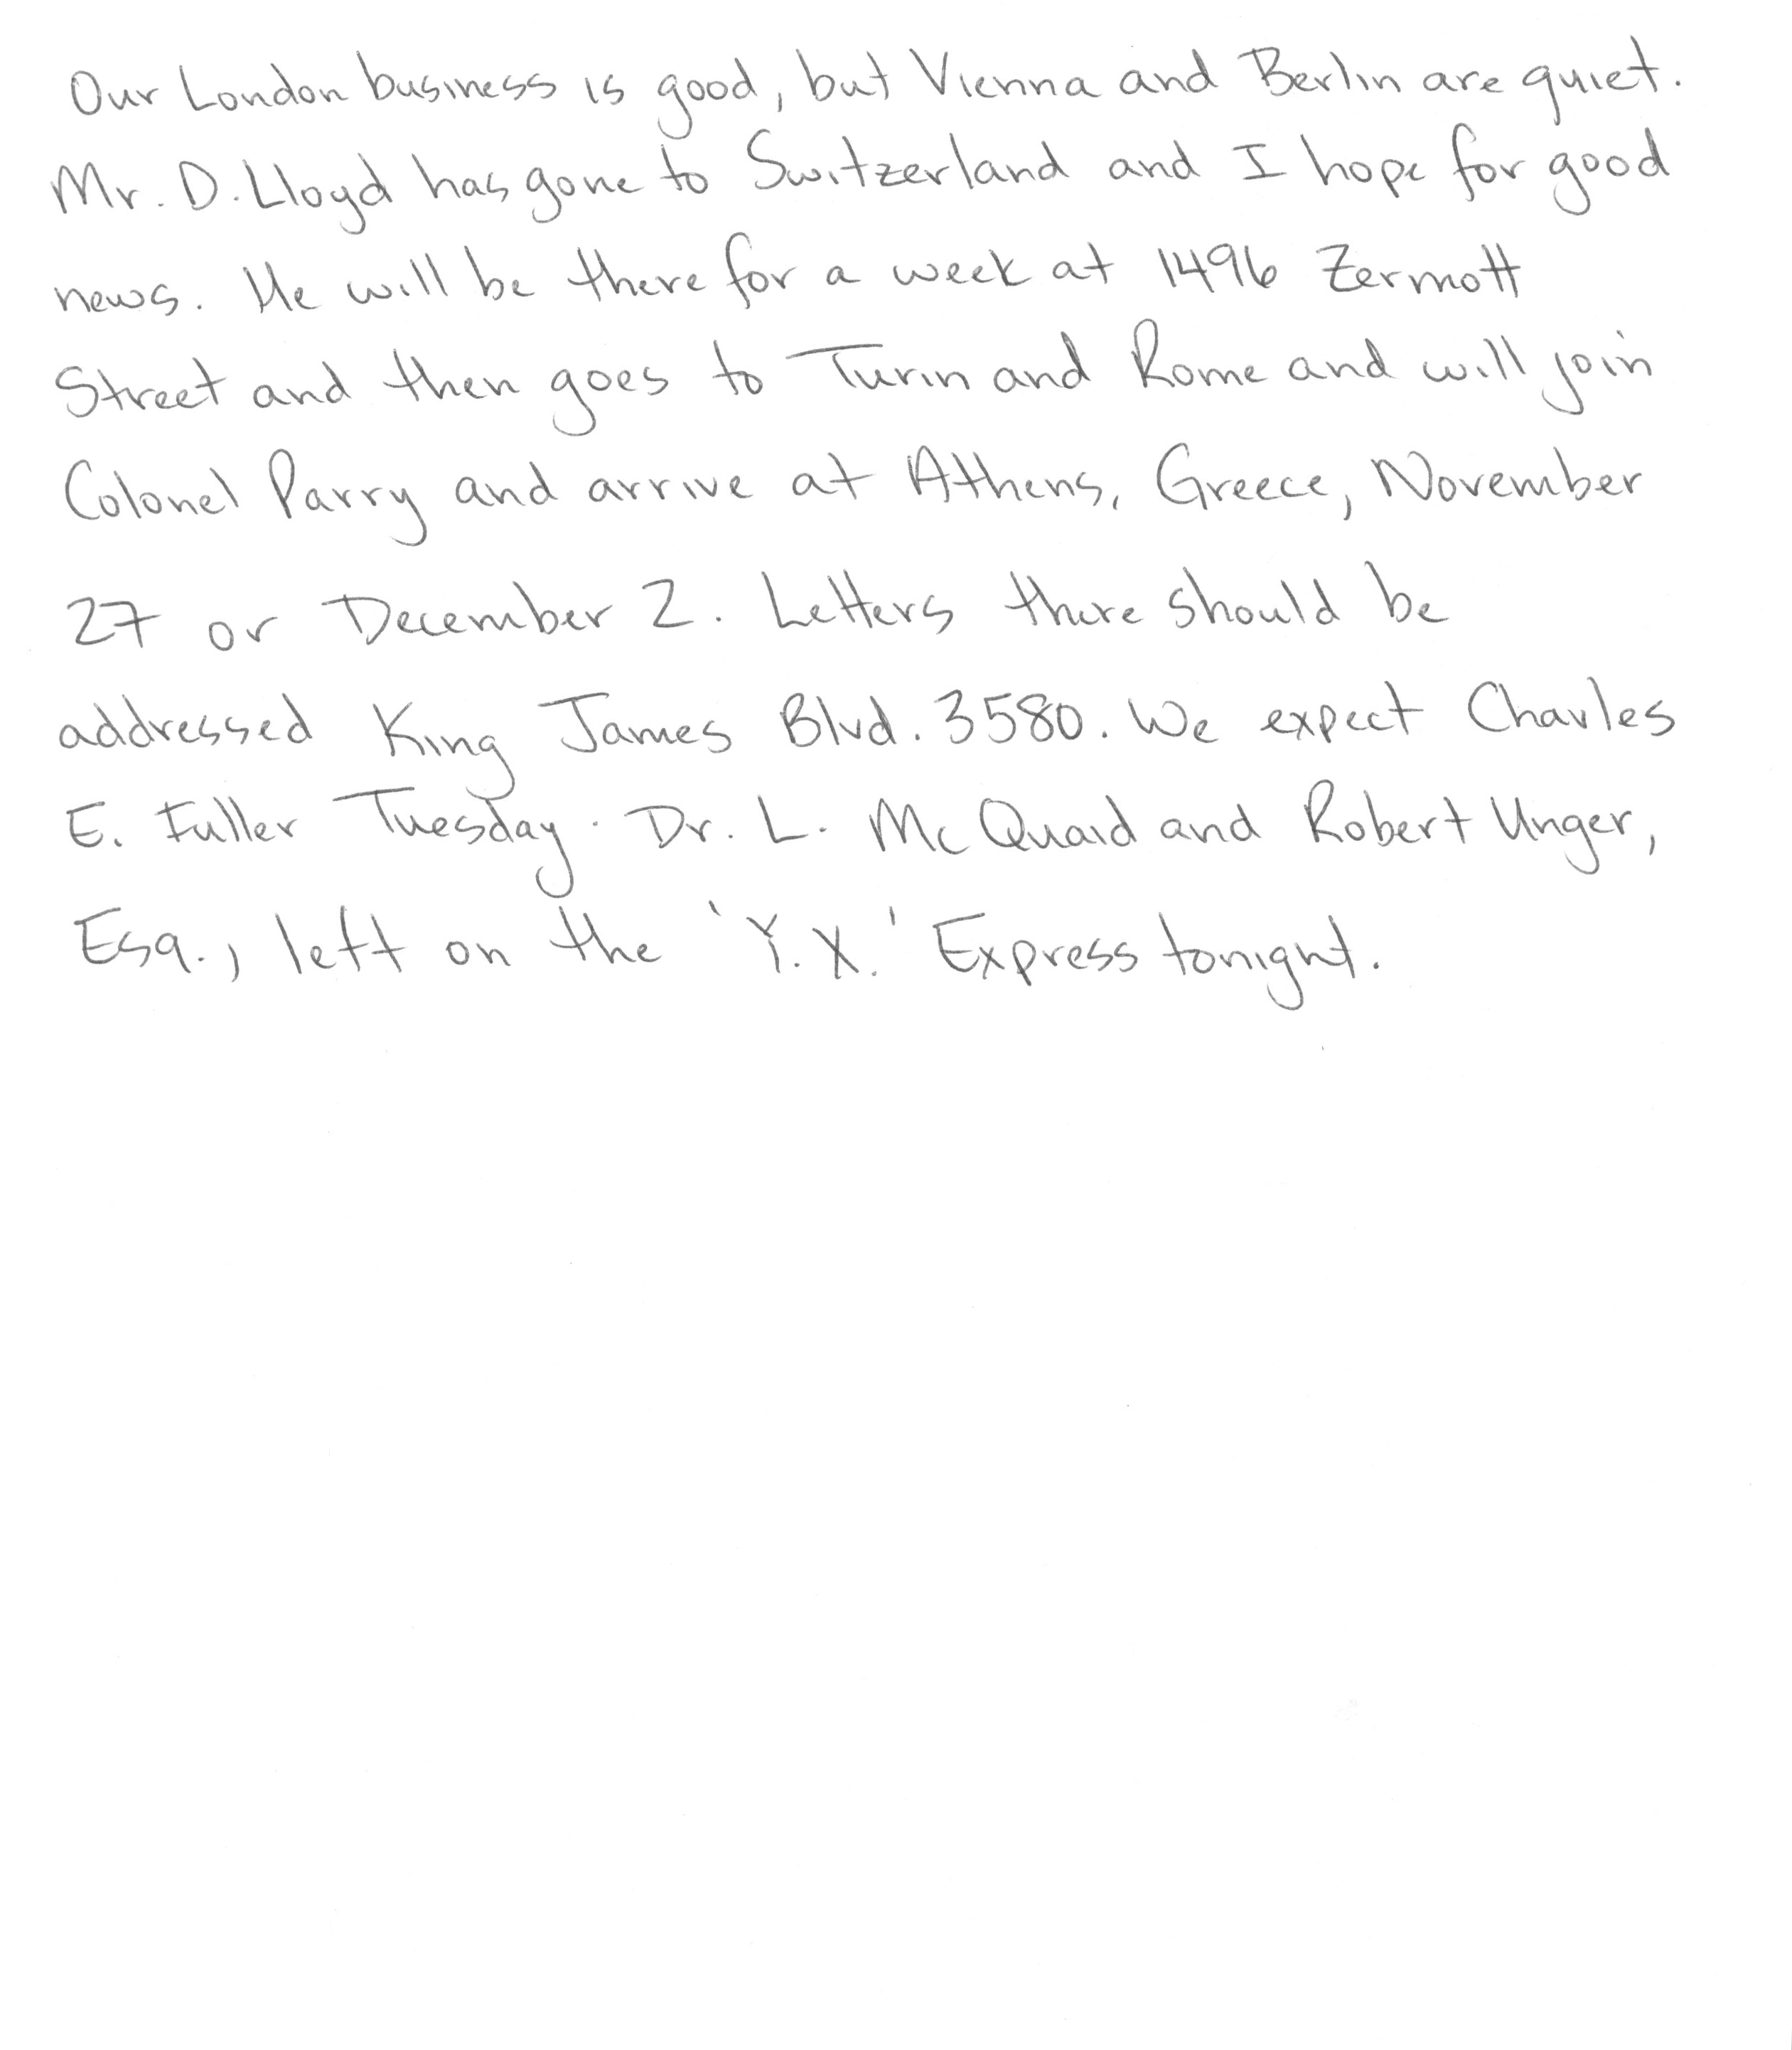 Our London business is good, but Vienna and Berlin are quiet.
Mr. D. Lloyd has gone to Switzerland and I hope for good
news. He will be there for a week at 1496 Zermott
Street and then goes to Turin and Rome and will join
Colonel Parry and arrive at Athens, Greece, November
27 or December 2. Letters there should be
addressed King James Blvd. 3580. We expect Charles
E. Fuller Tuesday. Dr. L. McQuaid and Robert Unger,
Esq., left on the 'Y.X.' Express tonight.